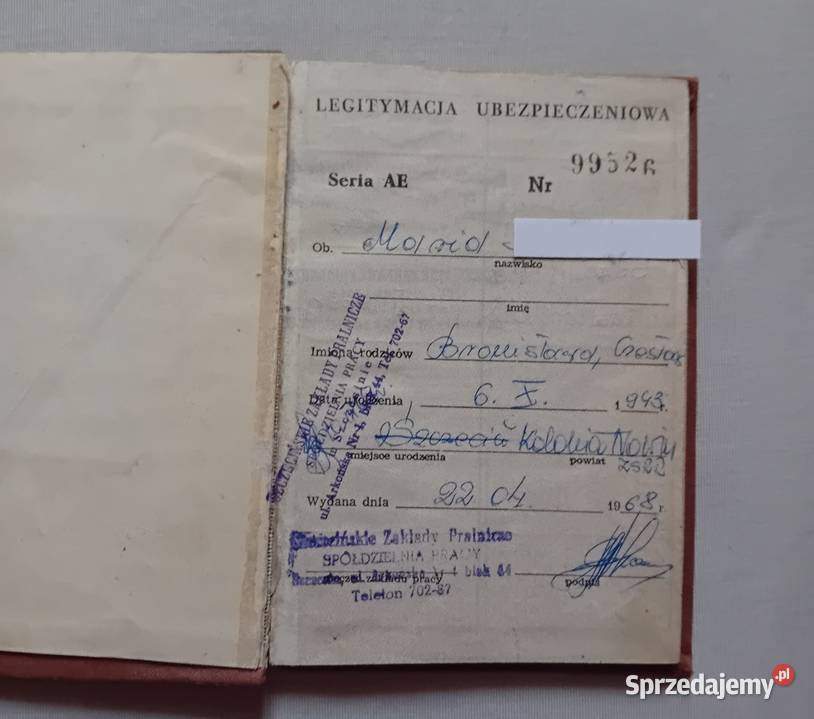 LEGITYMACJA UBEZPIECZENIOWA
Seria AE Nr 99526
Ob. Maria
nazwisko
imię
Imiona rodziców Bronisława, Czesław
Data urodzenia 6. X. 1943 r.
Szczecin Kolonia Nowy
miejsce urodzenia powiat
Wydana dnia 22 04. 1968 r
SZCZECIŃSKIE ZAKŁADY PRALNICZE
SPÓŁDZIELNIA PRACY
w Szczecinie
ul. Arkońska Nr 4, blok 64, Tel. 702-67
Szczecińskie Zakłady Pralnicze
SPÓŁDZIELNIA PRACY
Szczecin, ul. Arkońska Nr 4 blok 64
pieczęć zakładu pracy podpis
Telefon 702-67
Sprzedajemy.pl